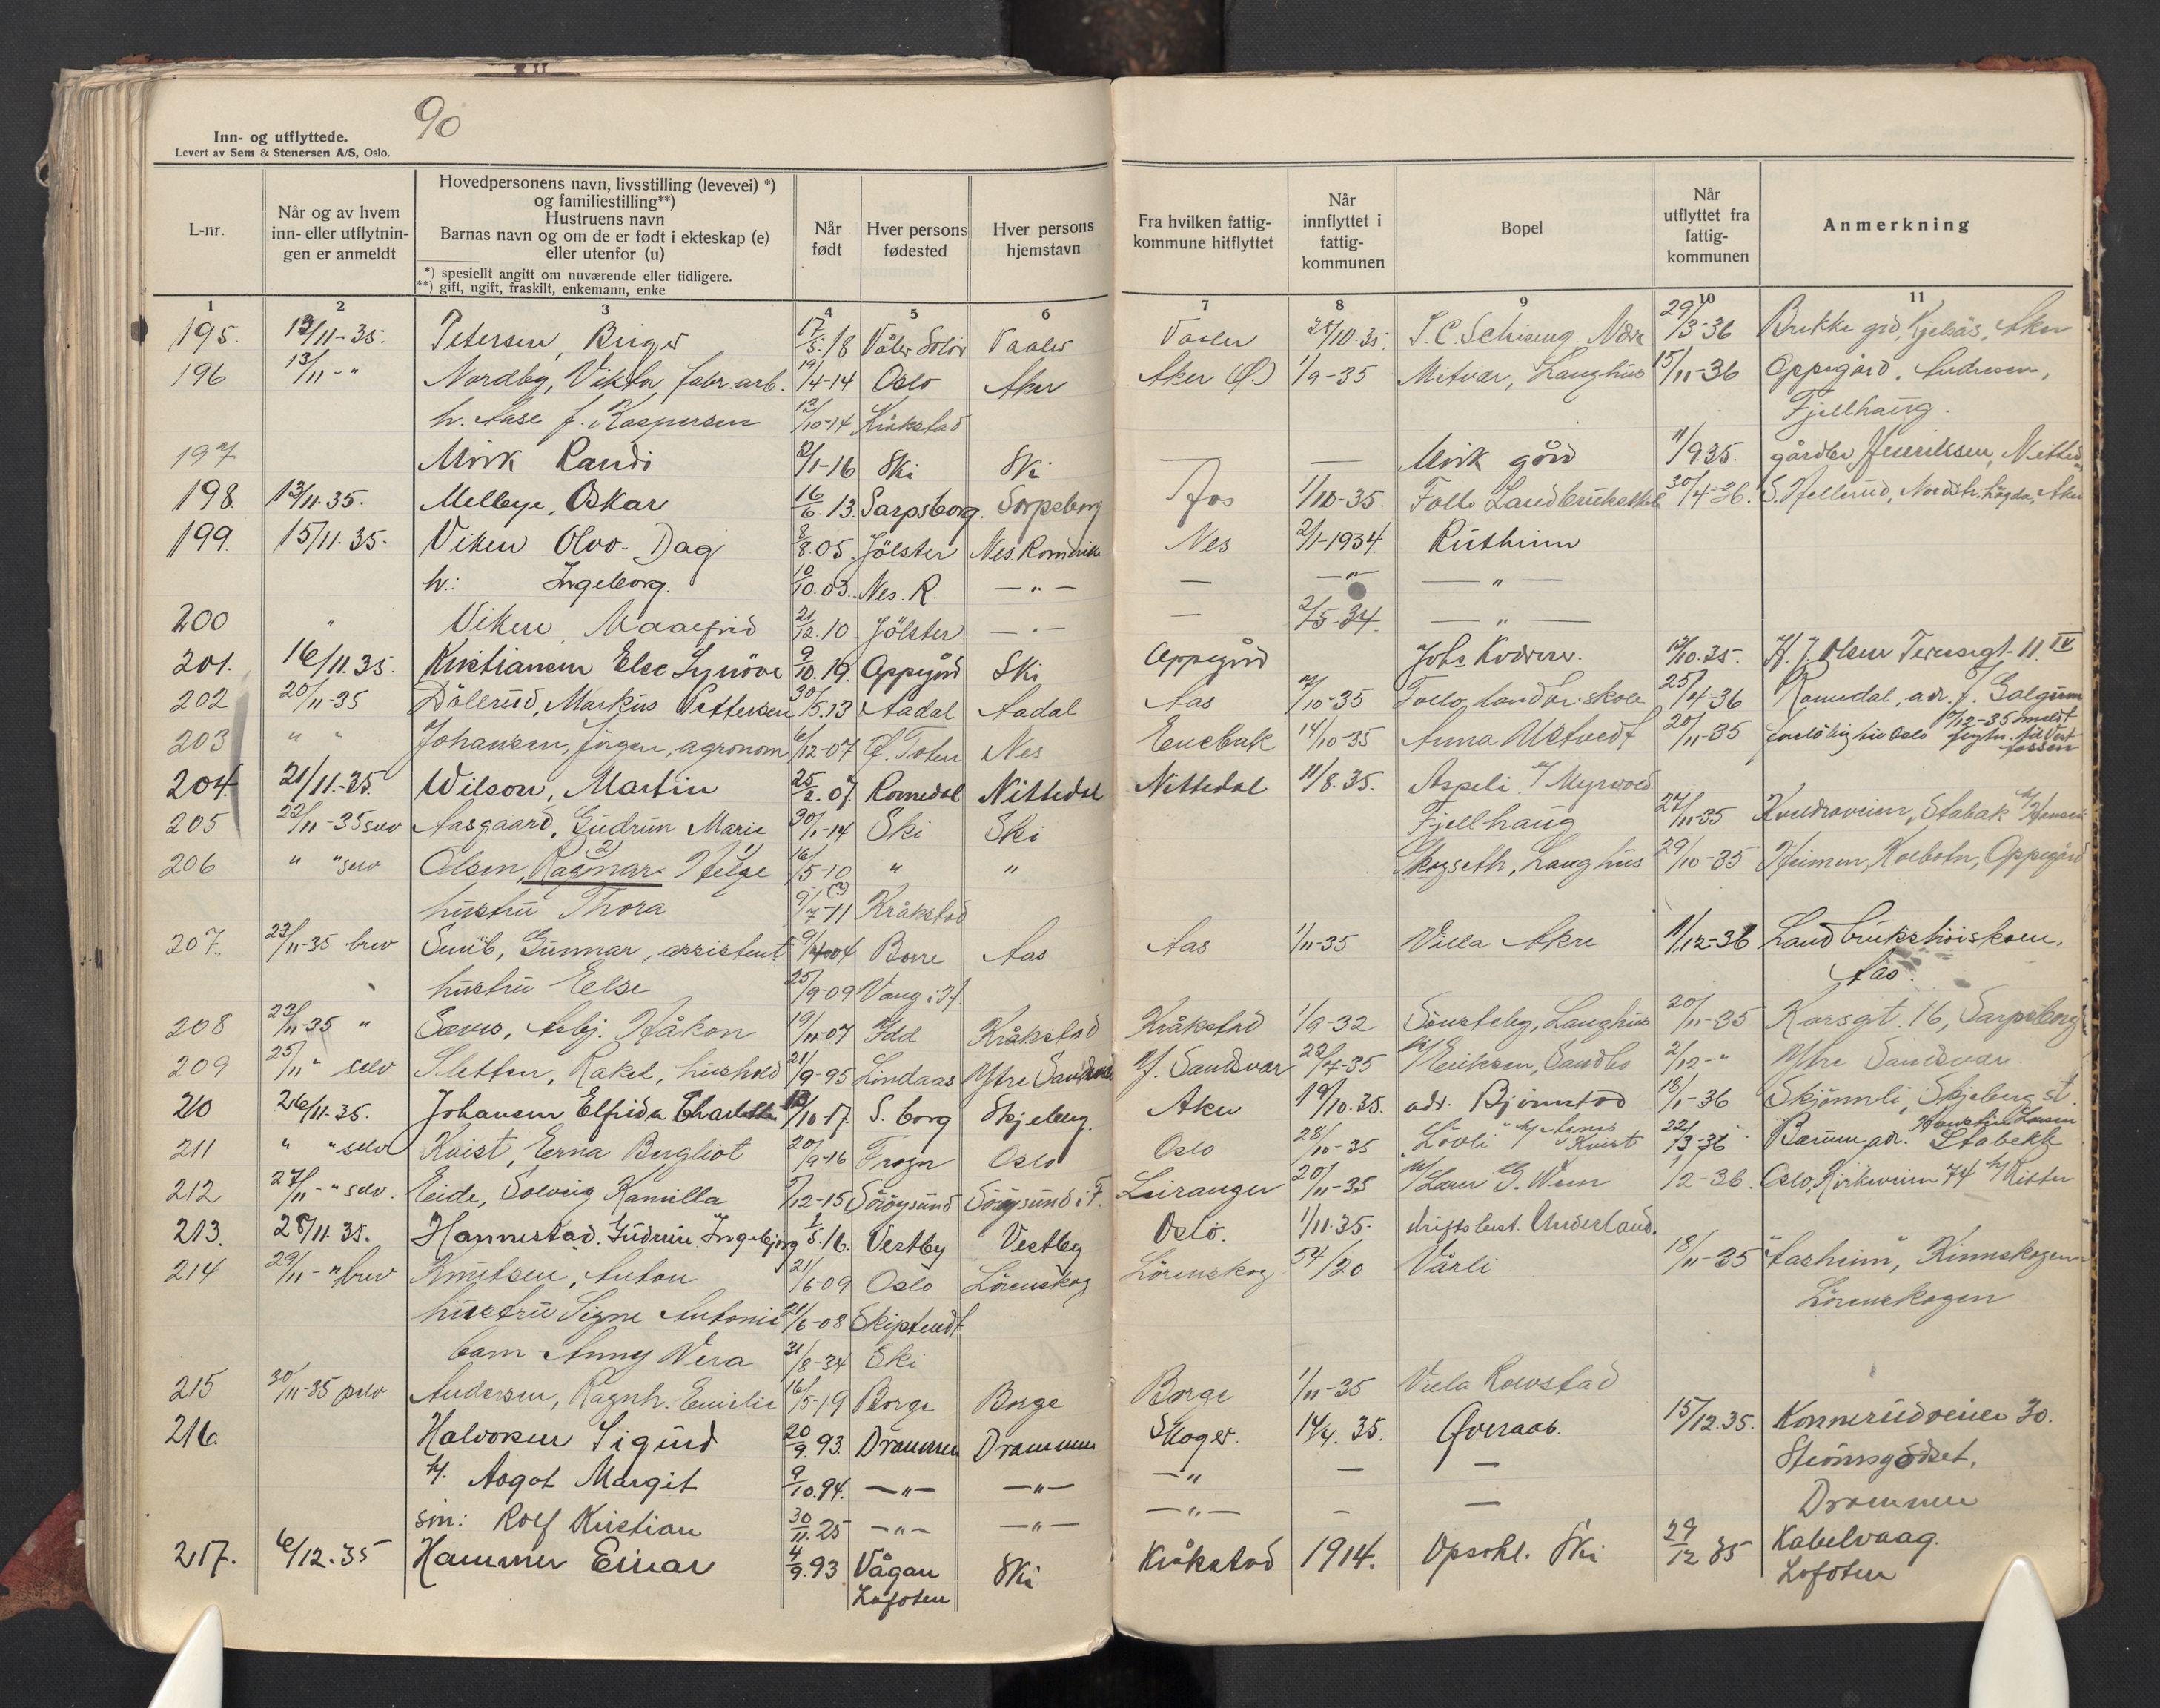 90
Inn- og utflyttede.
Levert av Sem & Stenersen A/S, Oslo.
L-nr.
Når og av hvem
inn- eller utflytnin-
gen er anmeldt
Hovedpersonens navn, livsstilling (levevei) *)
og familiestilling**)
Hustruens navn
Barnas navn og om de er født i ekteskap (e)
eller utenfor (u)
*) spesiellt angitt om nuværende eller tidligere.
**) gift, ugift, fraskilt, enkemann, enke
Når
født
Hver persons
fødested
Hver persons
hjemstavn
Fra hvilken fattig-
kommune hitflyttet
Når
innflyttet i
fattig-
kommunen
Bopel
Når
utflyttet fra
fattig-
kommunen
Anmerkning
1 2 3 4 5 6 7 8 9 10 11
195. 12/11-35. Petersen, Birger 17/5.18 Våler Solør Vaaler Vaaler 25/10.35. 29/3-36 Brekke grd, Kjelsås, Aker
196 13/11-" Nordby, Viktor fabr.arb. 19/4-14 Oslo Aker Aker (Ø.) 1/9-35 Mitvar, Langhus 15/11-36 Oppegård, Andresen,
h. Aase f. Kaspersen 12/10-14 Kråkstad Fjellhaug.
197 Mörk Randi 2/1-16 Ski Ski — — Mörk gård 11/9.35. gårdbr Henriksen, Nittedal
198. 13/11.35. Melleye, Oskar 16/6.13. Sarpsborg. Sarpsborg Aas 1/10-35. Follo Landbrukskole 30/4-36. S. Hellerud, Nordstr. högda, Aker
199. 15/11.35. Viken Olav-Dag 8/8.05. Jölster Nes. Romerike Nes 2/1-1934. Rustheim
h.: Ingeborg. 10/10.03. Nes. R. —"— — —"— —"—
200 " Viken, Maagrid 21/12.10 Jölster —"— — 2/5-34. —"—
201. 16/11.35. Kristiansen Else Synöve 9/10.19. Oppegård Ski Oppegård Johs Kvdrer. 12/10.35. H. J. Olsen Teresegt. 11. IV
202 20/11-35 Döllerud, Markus Pettersen 30/5.13 Aadal Aadal Aas 7/10-35 Follo landbr. skole 25/4-36 Romedal, adr. f. Galgum
203 " " Johansen, Jörgen, agronom 6/12-07 Ö. Toten Nes Enebak 14/10-35 Anna Ustvedt 20/11-35 forelöbig til Oslo 17/12-35 meldt flytn. til Vestfossen
204. 21/11.-35. Wilson, Martin 25/2.07. Romedal Nittedal Nittedal 11/8.35. Aspeli "/Myrvold
205 22/11-35 selv Aasgaard, Gudrun Marie 30/1-14 Ski Ski Fjellhaug 27/11-35 Kveldroveien, Stabak h/Hansen
206 " " selv Olsen, Ragnar 2) Helge 1) 16/5-10 " " Skogseth, Langhus 29/10-35 Heimen, Kolbotn, Oppegård
hustru Thora 9/7-11 (?) Kråkstad
207. 22/11-35 brev Smib, Gunnar, assistent Borre Aas Aas 1/11-35 Villa Akre 1/12-36 Landbrukshöiskolen,
hustru Else 25/9-09 Vang i H. Aas.
208 23/11-35 " Asbj. Håkon 19/11-07 Idd Kråkstad Kråkstad 1/9-32 Sönsteby, Langhus 20/11-35 Korsgt. 16, Sarpsborg
209 25/11 " selv Sletten, Rakel, hushold 21/9-95 Lindaas Ytre Sandsvær Y. Sandsvær 22/7-35 h/Eriksen, Sandbo 2/12-" Ytre Sandsvær
210 26/11.35. Johansen Elfrida Charlotte 13/10-17. S. borg Skjeberg. Aker 19/10.35. adr. Björnstad 18/1-36 Skjönnli, Skjeberg st.
211 " " selv Kvist, Erna Bergliot 20/9-16 Frogn Oslo Oslo 28/10-35 "Lövli" h/Agnes Kvist 22/3-36 Bærum, adr. Stabekk
212 27/11-" selv. Eide, Solveig Kamilla 5/12-15 Söröysund Söröysund i F. Leiranger 20/11-35 h/Lærer G. Wien 1/2-36. Oslo, Kirkeveien 74 h/Ritter
213. 28/11.35. Hannestad. Gudrun Ingebjörg 1/5.16. Vestby Vestby Oslo. 1/11.35. driftsbest. Underland.
214 29/11-" brev Knutsen, Anton 21/6-09 Oslo Lörenskog Lörenskog 54/20 Vårli 18/11-35 "Aasheim", Kinnskogen
hustru Signe Antonie 21/6-08 Skiptvedt Lörenskogen
barn Anny Vera 31/8-34 Ski
215 30/11-35 selv Andersen, Ragnh. Emilie 16/5-19 Borge Borge Borge 1/11-35 Villa Rolvstad
216. Halvorsen Sigurd 20/9.93. Drammen Drammen Skoger. 14/4.35. Överaas. 15/12.35. Konnerudveien 30.
h. Aagot Margit 9/10.94. —"— —"— —"— — — Strömsgodset,
sön: Rolf Kristian 30/11.25 —"— —"— —"— — — Drammen
217. 6/12.35 Hammer Einar 4/9.93 Vågan Ski Kråkstad 1914. Opsahl. Ski 29/12 35 Kabelvaag.
Lofoten Lofoten